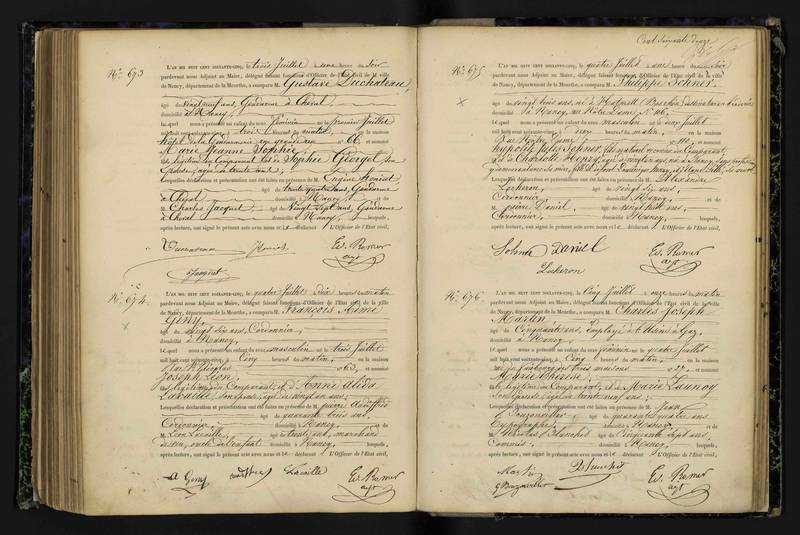 N.º 673
L'AN MIL HUIT CENT SOIXANTE-CINQ, le trois Juillet à une heure du Soir
pardevant nous Adjoint au Maire, délégué faisant fonctions d'Officier de l'Etat civil de la ville
de Nancy, département de la Meurthe, a comparu M. Gustave Duchateau,
âgé de vingt neuf ans, Gendarme à Cheval
domicilié à Nancy,
lequel nous a présenté un enfant du sexe féminin né le premier Juillet
mil huit cent soixante-cinq, à trois heures du matin, en la maison
hôtel de la Gendarmerie rue grande rue 66, et nommé
Marie Jeanne Sophie,
fille légitime du Comparant et de Sophie Georgel, son
épouse, âgée de trente ans,
Lesquelles déclaration et présentation ont été faites en présence de M. Eugène
âgé de trente quatre ans, Gendarme
à Cheval, domicilié à Nancy, et de
M. Charles Jacquot âgé de Vingt Sept ans, Gendarme
à Cheval domicilié à Nancy, lesquels,
après lecture, ont signé le présent acte avec nous et le déclarant L'Officier de l'Etat civil,
Ed. Remer
adjt
N.º 674
L'AN MIL HUIT CENT SOIXANTE-CINQ, le quatre Juillet à dix heures du matin
pardevant nous Adjoint au Maire, délégué faisant fonctions d'Officier de l'Etat civil de la ville
de Nancy, département de la Meurthe, a comparu M. François Aimé
Geny,
âgé de vingt six ans, Cordonnier,
domicilié à Nancy,
lequel nous a présenté un enfant du sexe masculin né le trois Juillet
mil huit cent soixante-cinq, à Cinq heures du matin, en la maison
rue 63, et nommé
Joseph Léon,
fils légitime du Comparant, et d'Anne Alida
Lavaille, son épouse, âgée de vingt un ans;
Lesquelles déclaration et présentation ont été faites en présence de M. pierre
âgé de quarante trois ans,
Cordonnier, domicilié à Nancy, et de
M. Léon Lavaille, âgé de trente ans, marchand
oncle de l'enfant domicilié à Nancy, lesquels,
après lecture, ont signé le présent acte avec nous et le déclarant L'Officier de l'Etat civil,
a Geny Lavaille Ed. Remer
adjt
Cent Soixante Onze
N.º 675
L'AN MIL HUIT CENT SOIXANTE-CINQ, le quatre Juillet à une heure du Soir
pardevant nous Adjoint au Maire, délégué faisant fonctions d'Officier de l'Etat civil de la ville
de Nancy, département de la Meurthe, a comparu M. Philippe Sohner,
âgé de vingt trois ans, né à
domicilié à Nancy, rue Notre Dame N.º 116,
lequel nous a présenté un enfant du sexe masculin né le deux Juillet
mil huit cent soixante-cinq, à deux heures du matin, en la maison
rue Notre Dame 116, et nommé
hypolite Jules Sohner, fils naturel reconnu du Comparant
et de Charlotte Henry, âgée de vingt un ans, née à Nancy,
Lesquelles déclaration et présentation ont été faites en présence de M. Alexandre
Luckeron, âgé de vingt six ans,
Cordonnier, domicilié à Nancy, et de
M. pierre Daniel, âgé de vingt huit ans,
Cordonnier, domicilié à Nancy, lesquels,
après lecture, ont signé le présent acte avec nous et le déclarant L'Officier de l'Etat civil,
Sohner Daniel Ed. Remer
Luckeron adjt
N.º 676
L'AN MIL HUIT CENT SOIXANTE-CINQ, le Cinq Juillet à onze heures du matin
pardevant nous Adjoint au Maire, délégué faisant fonctions d'Officier de l'Etat civil de la ville
de Nancy, département de la Meurthe, a comparu M. Charles Joseph
Martin,
âgé de Cinquante ans, Employé à l'Usine à Gaz,
domicilié à Nancy,
lequel nous a présenté un enfant du sexe féminin né le quatre Juillet
mil huit cent soixante-cinq, à Cinq heures du matin, en la maison
rue du faubourg des trois maisons et nommé
Marie Thérèse,
fille légitime du Comparant, et de Marie Launoy
Son Epouse, âgée de trente neuf ans;
Lesquelles déclaration et présentation ont été faites en présence de M. Jean
Bouzonviller âgé de quarante quatre ans
Typographe, domicilié à Nancy et de
M. Nicolas Blanchet âgé de Cinquante Sept ans,
Commis, domicilié à Nancy, lesquels,
après lecture, ont signé le présent acte avec nous et le déclarant L'Officier de l'Etat civil,
Martin Blanchet Ed. Remer
adjt